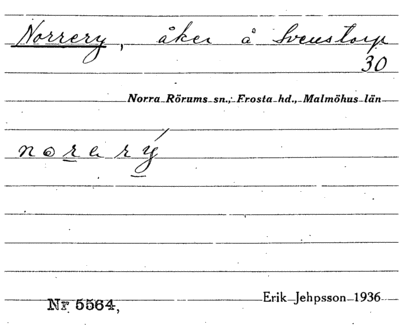 Norrery, åker å Svenstorp
30
Norra Rörums sn., Frosta hd., Malmöhus län
norarý
Nr 5564,
Erik Jehpsson 1936